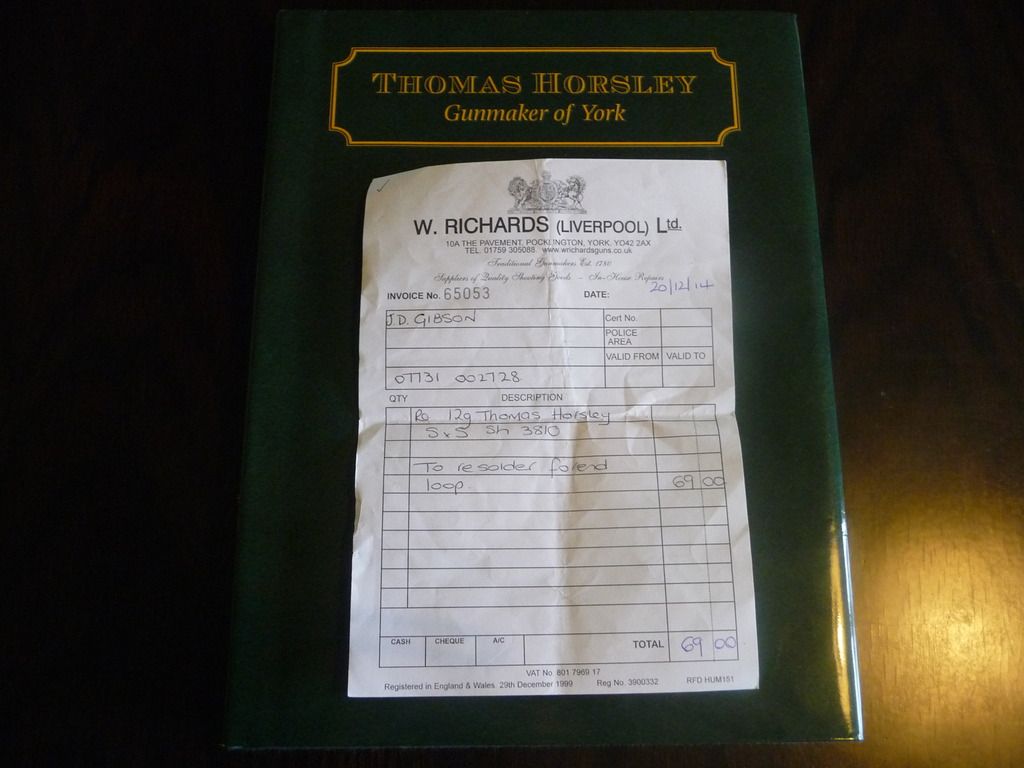 THOMAS HORSLEY
Gunmaker of York
W. RICHARDS (LIVERPOOL) Ltd.
10A THE PAVEMENT, POCKLINGTON, YORK, YO42 2AX
TEL. 01759 305088 www.wrichardsguns.co.uk
Traditional Gunmakers Est. 1780
Suppliers of Quality Shooting Goods - In-House Repairs
INVOICE No. 65053 DATE: 20/12/14
J.D. GIBSON Cert No.
POLICE
AREA
VALID FROM VALID TO
07731 002728
QTY DESCRIPTION
Re 12g Thomas Horsley
SxS Sh 3810
To resolder forend
loop. 69 00
CASH CHEQUE A/C TOTAL 69 00
VAT No 801 7969 17
Registered in England & Wales 29th December 1999 Reg No. 3900332 RFD HUM151